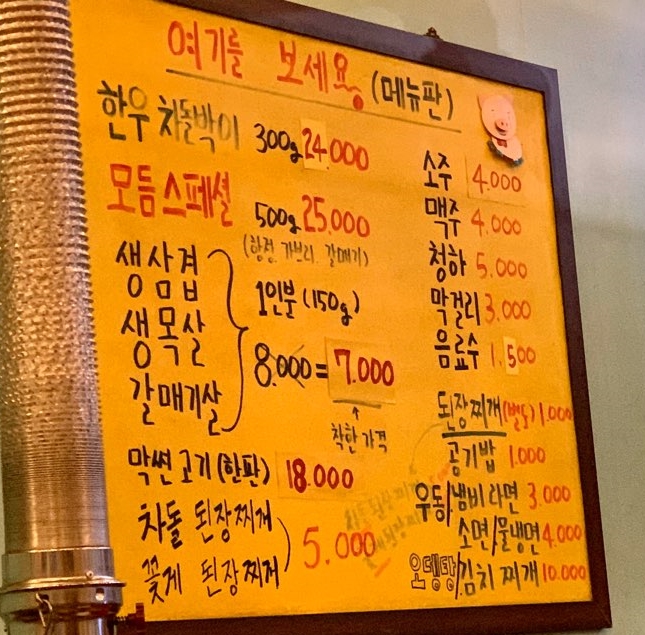 여기를 보세요 (메뉴판)
한우 차돌박이 300g 24.000
모듬스페셜 500g 25.000
(항정. 가브리. 갈매기)
생삼겹
생목살
갈매기살
1인분 (150g)
8.000 = 7.000
착한가격
막썬고기 (한판) 18.000
차돌 된장찌개
꽃게 된장찌개
5.000
소주 4.000
맥주 4.000
청하 5.000
막걸리 3.000
음료수 1.500
된장찌개 (별도) 1.000
공기밥 1.000
우동/냄비라면 3.000
소면/물냉면 4.000
오뎅탕/김치찌개 10.000